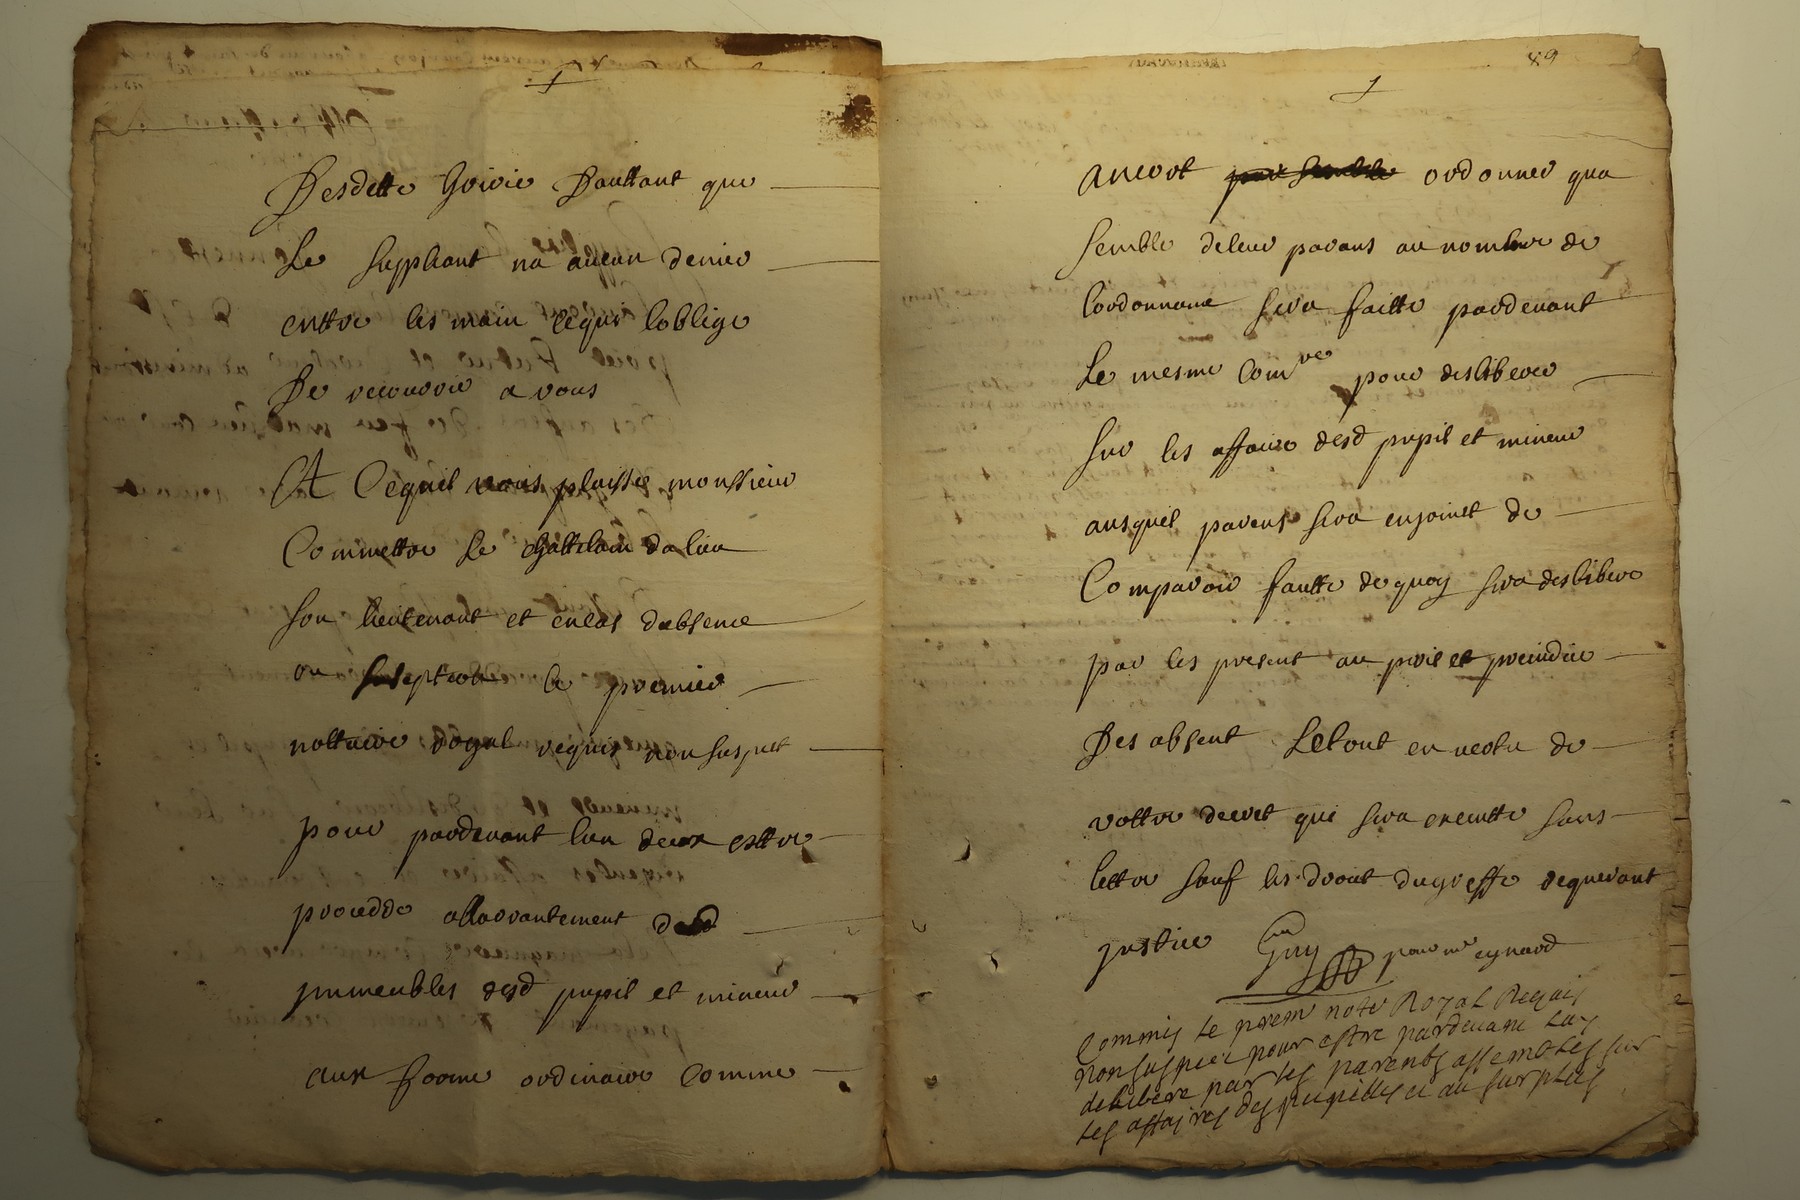 Desdette hoirie Dauttant que
Le suppliant na aucun denier
enttre les main cequi loblige
De recourrir a vous
A Cequil vous plaisse monssieur
Commettre le chattelain dulieu
son lieutenant et encas dabsence
ou le premier
nottaire royal requis non suspect
pour pardevant lun deux esttre
proceddé allarrantement desd
jmmeubles desd pupil et mineur
aux forme ordinaire Comme
89
ancort ordonner qua
semblé deleur parans au nombre de
lordonnance sera faitte pardevant
Le mesme Comre pour desliberer
sur les affaire desd pupil et mineur
ausquel parens sera enjoinct de
Comparoir fautte dequoy sera desliberé
par les present au proil et preiudice
Des absent Letout en vertu de
vottre decret qui sera executté sans
lettre sauf les droit dugreffe requerant
justice Guy pour me eynard
Commis le prem note Royal Requis
non suspect pour estre pardevant luy
deliberé par les parents assemblés sur
les affaires des pupilles et au surplus